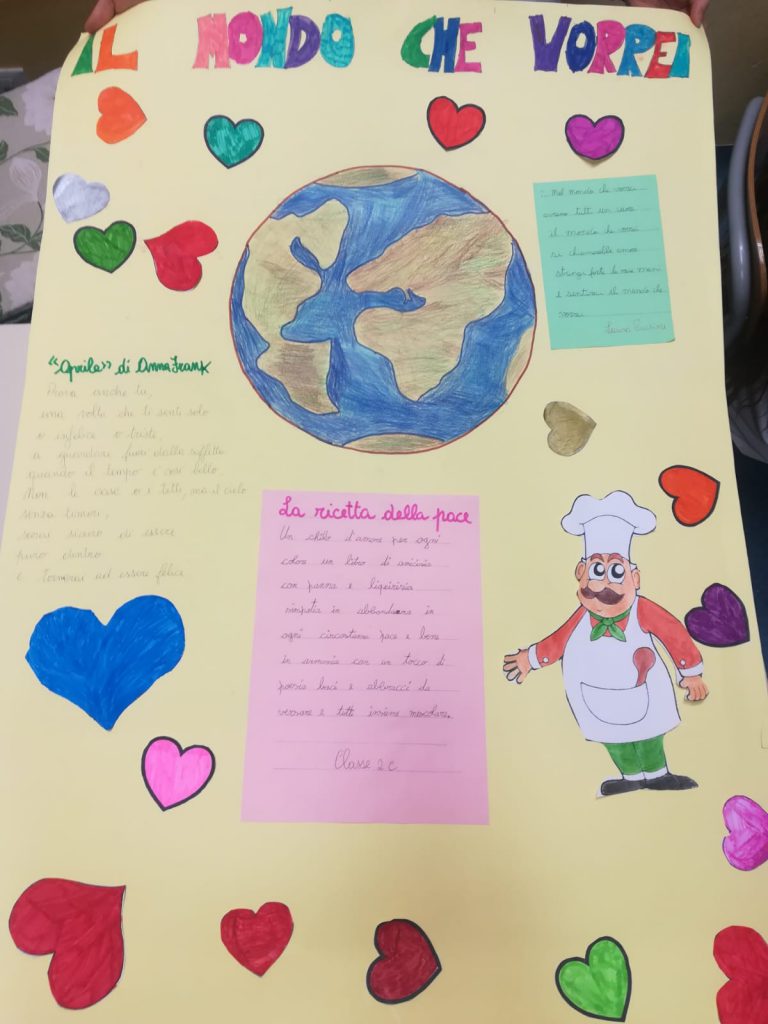 IL MONDO CHE VORREI
: Nel mondo che vorrei
avremo tutti un cuore
il mondo che vorrei
si chiamerebbe amore
stringi forte le mie mani
e sentirai il mondo che
vorrei
"Aprile" di Anna Frank
Prova anche tu,
una volta che ti senti solo
o infelice o triste,
a guardare fuori dalla soffitta
quando il tempo è così bello.
Non le case o i tetti, ma il cielo
senza timori,
sarai sicuro di essere
puro dentro
e tornerai ad essere felice
La ricetta della pace
Un chilo d'amore per ogni
colore un litro di amicizia
con panna e liquirizia
simpatia in abbondanza in
ogni circostanza pace e bene
in armonia con un tocco di
poesia baci e abbracci da
versare e tutti insieme mescolare.
Classe 2 C